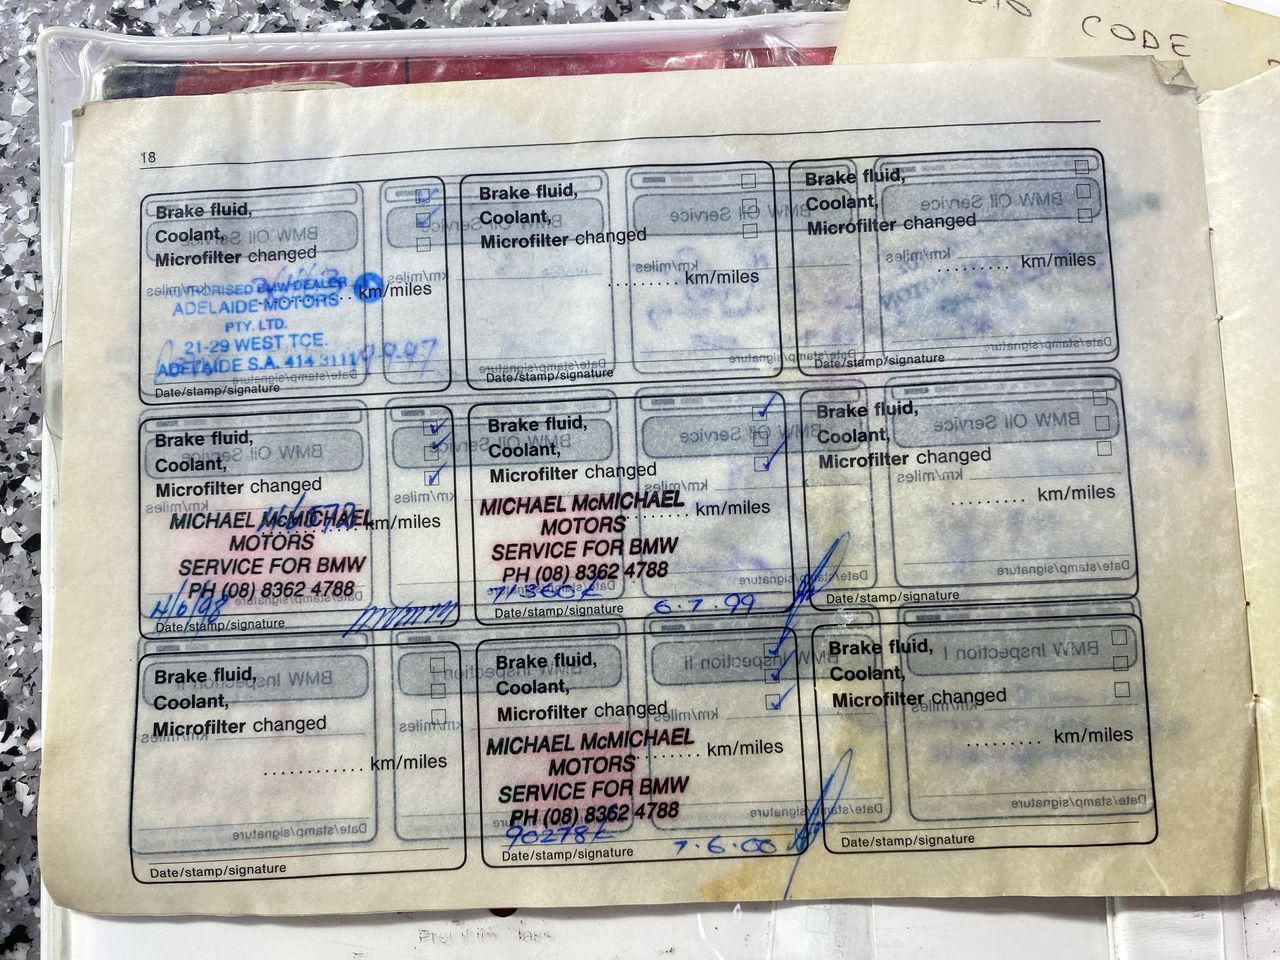 CODE
18
Brake fluid,
Coolant,
Microfilter changed
km/miles
AUTHORISED BMW DEALER
ADELAIDE MOTORS
PTY. LTD.
21-29 WEST TCE.
ADELAIDE S.A. 414 3111
9.9.97
Date/stamp/signature
Brake fluid,
Coolant,
Microfilter changed
......... km/miles
Date/stamp/signature
Brake fluid,
Coolant,
Microfilter changed
......... km/miles
Date/stamp/signature
Brake fluid,
Coolant,
Microfilter changed
km/miles
MICHAEL McMICHAEL
MOTORS
SERVICE FOR BMW
PH (08) 8362 4788
4/6/98
Date/stamp/signature
Brake fluid,
Coolant,
Microfilter changed
km/miles
MICHAEL McMICHAEL
MOTORS
SERVICE FOR BMW
PH (08) 8362 4788
6.7.99
Date/stamp/signature
Brake fluid,
Coolant,
Microfilter changed
......... km/miles
Brake fluid,
Coolant,
Microfilter changed
............ km/miles
Date/stamp/signature
Brake fluid,
Coolant,
Microfilter changed
km/miles
MICHAEL McMICHAEL
MOTORS
SERVICE FOR BMW
PH (08) 8362 4788
90278k
7.6.00
Date/stamp/signature
Brake fluid,
Coolant,
Microfilter changed
......... km/miles